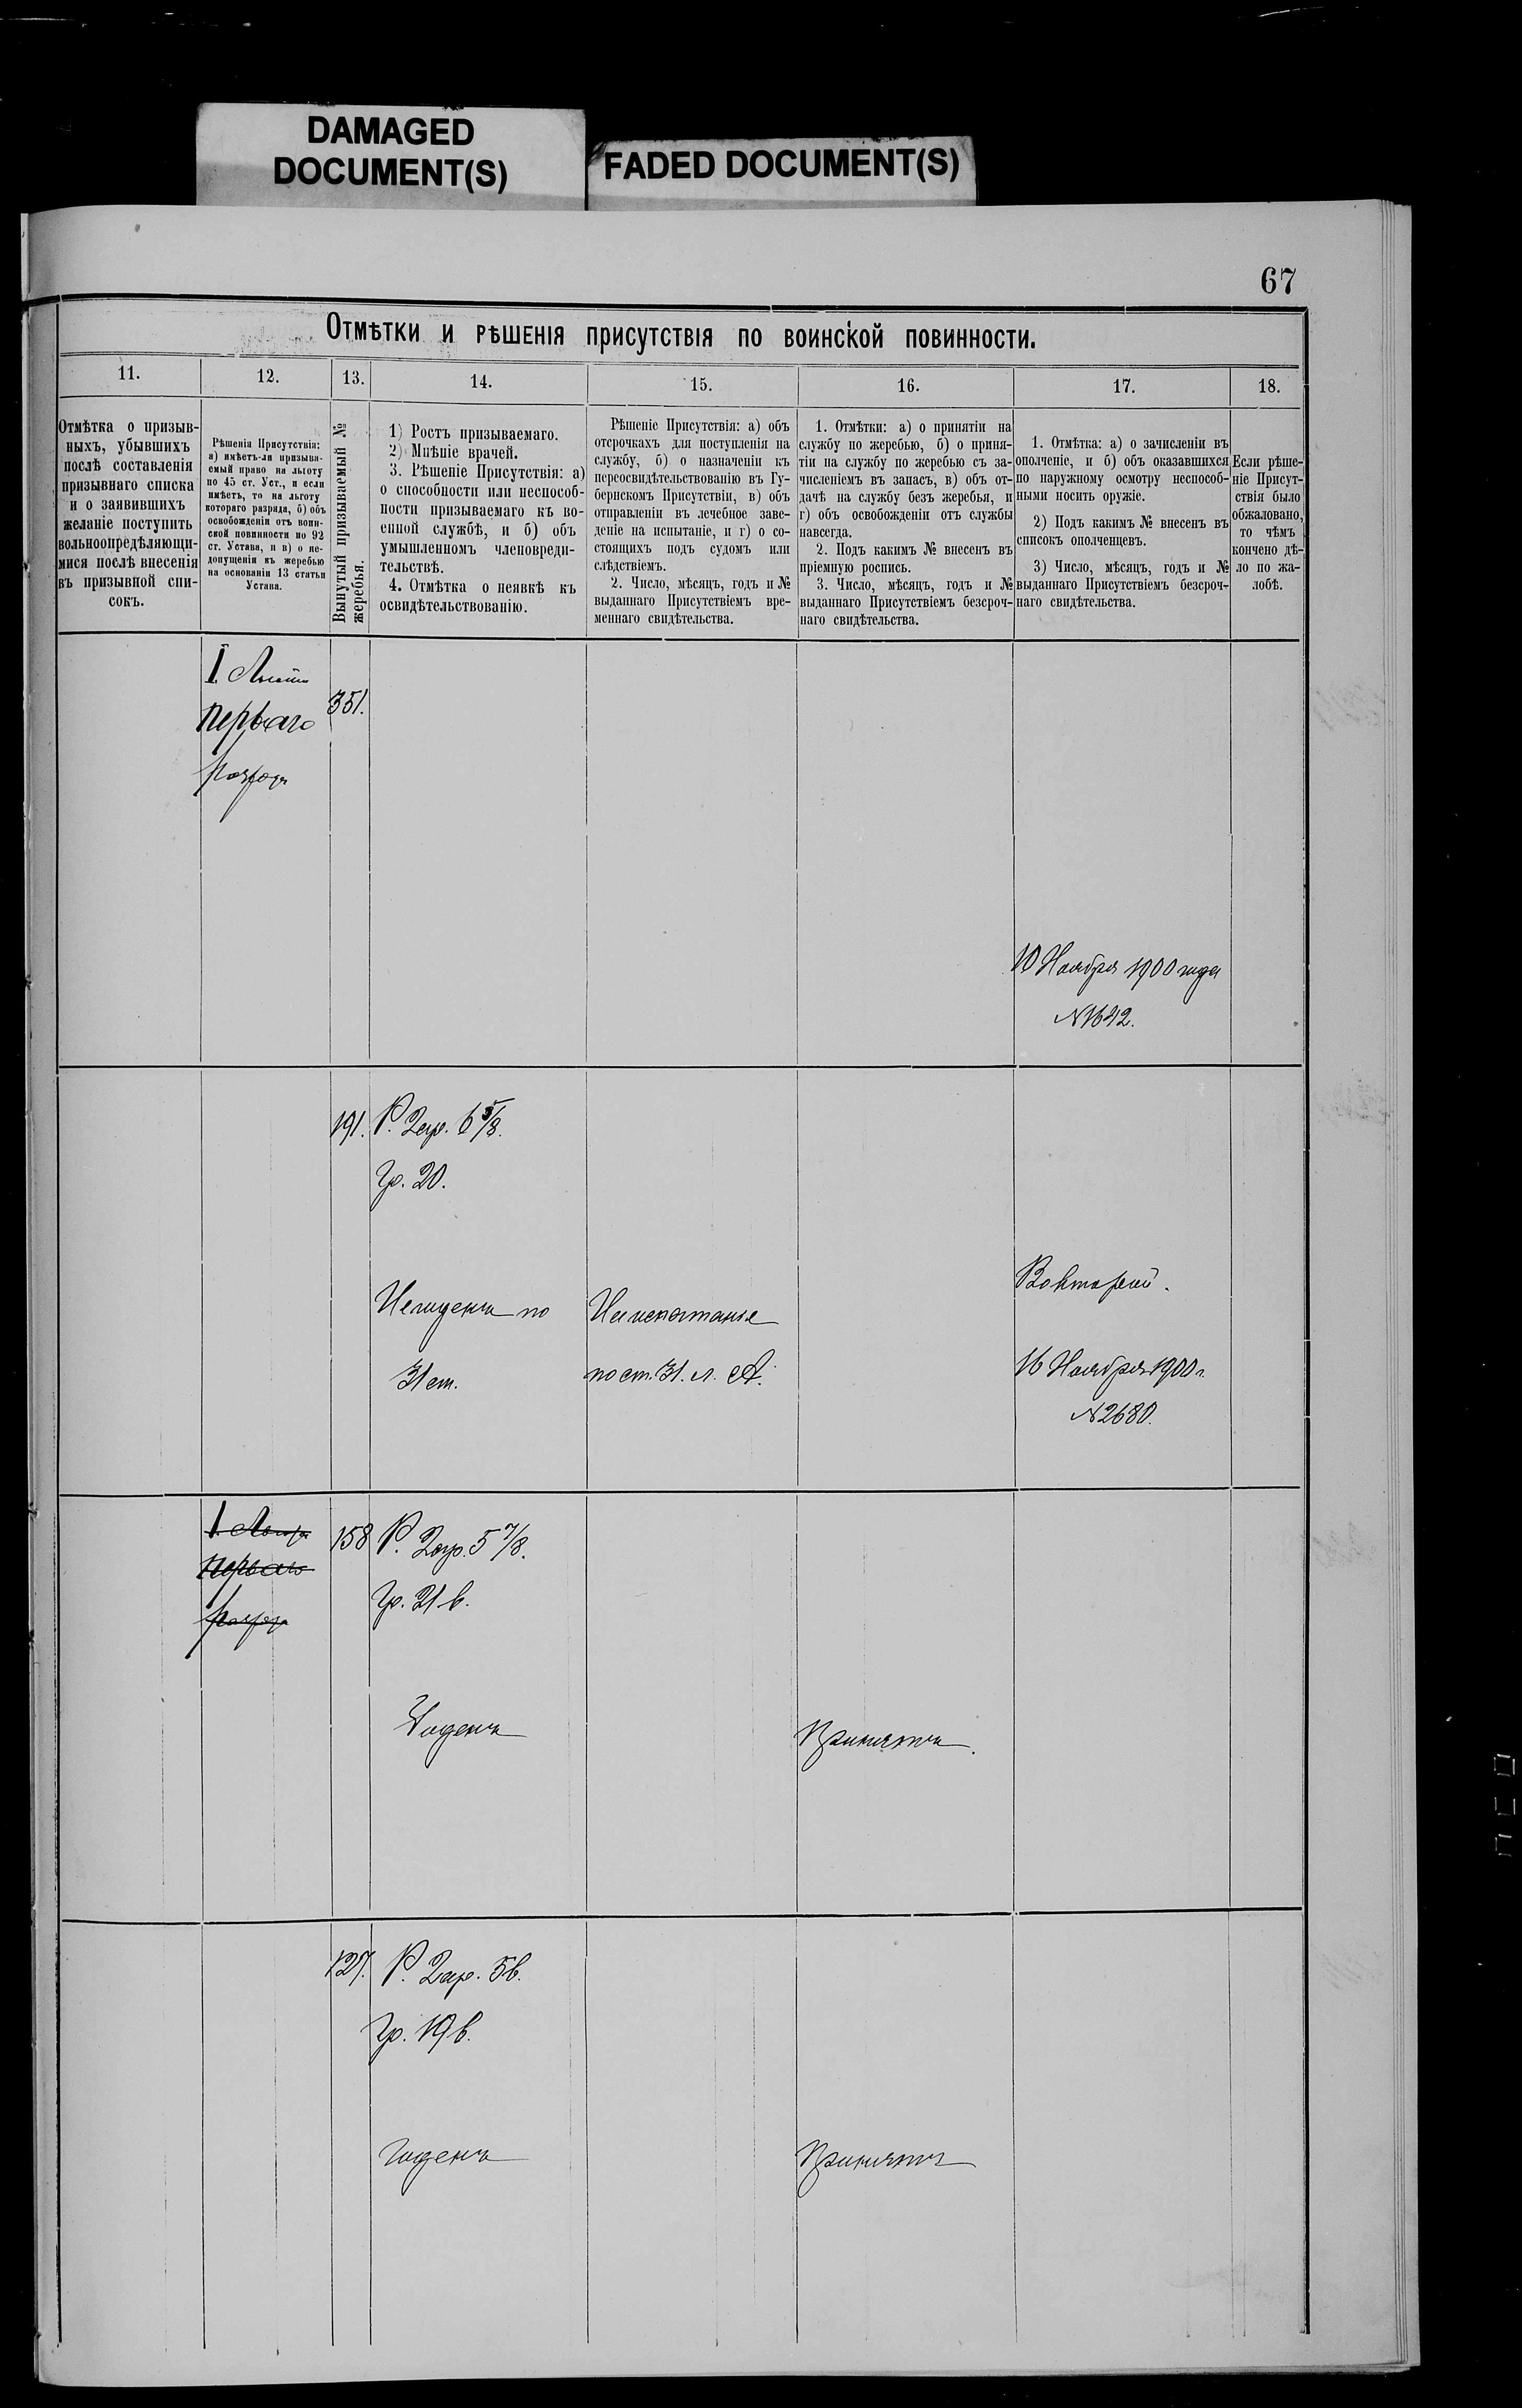 DAMAGED
DOCUMENT(S)
FADED DOCUMENT(S)
67
Отмѣтки и рѣшенія присутствія по воинской повинности.
11.
12.
13.
14.
15.
16.
17.
18.
Отмѣтка о призыв-
ныхъ, убывшихъ
послѣ составленія
призывнаго списка
и о заявившихъ
желаніе поступить
вольноопредѣляющи-
мися послѣ внесенія
въ призывной спи-
сокъ.
Рѣшенія Присутствія:
а) имѣетъ-ли призыва-
емый право на льготу
по 45 ст. Уст., и если
имѣетъ, то на льготу
котораго разряда, б) объ
освобожденіи отъ воин-
ской повинности по 92
ст. Устава, и в) о не-
допущеніи къ жеребью
на основаніи 13 статьи
Устава.
Вынутый призываемый №
жеребья.
1) Ростъ призываемаго.
2) Мнѣніе врачей.
3. Рѣшеніе Присутствія: а)
о способности или неспособ-
ности призываемаго къ во-
енной службѣ, и б) объ
умышленномъ членовреди-
тельствѣ.
4. Отмѣтка о неявкѣ къ
освидѣтельствованію.
Рѣшеніе Присутствія: а) объ
отсрочкахъ для поступленія на
службу, б) о назначеніи къ
переосвидѣтельствованію въ Гу-
бернскомъ Присутствіи, в) объ
отправленіи въ лечебное заве-
деніе на испытаніе, и г) о со-
стоящихъ подъ судомъ или
слѣдствіемъ.
2. Число, мѣсяцъ, годъ и №
выданнаго Присутствіемъ вре-
меннаго свидѣтельства.
1. Отмѣтки: а) о принятіи на
службу по жеребью, б) о приня-
тіи на службу по жеребью съ за-
численіемъ въ запасъ, в) объ от-
дачѣ на службу безъ жеребья, и
г) объ освобожденіи отъ службы
навсегда.
2. Подъ какимъ № внесенъ въ
пріемную роспись.
3. Число, мѣсяцъ, годъ и №
выданнаго Присутствіемъ безсроч-
наго свидѣтельства.
1. Отмѣтка: а) о зачисленіи въ
ополченіе, и б) объ оказавшихся
по наружному осмотру неспособ-
ными носить оружіе.
2) Подъ какимъ № внесенъ въ
списокъ ополченцевъ.
3) Число, мѣсяцъ, годъ и №
выданнаго Присутствіемъ безсроч-
наго свидѣтельства.
Если рѣше-
ніе Присут-
ствія было
обжаловано,
то чѣмъ
кончено дѣ-
ло по жа-
лобѣ.
I.
перваго
разряда
351.
10 Ноября 1900 года
N 1642.
191.
Р. 2 ар. 6 5/8.
Гр. 20.
Негоденъ по
31 ст.
На испытаніе
по ст. 31. л. А.
16 Ноября 1900 г.
N 2680.
I. Льгота
перваго
разряда
158
Р. 2 ар. 5 7/8.
Гр. 21 в.
Годенъ
Принятъ.
127.
Р. 2 ар. 5 в.
Гр. 19 в.
Годенъ
Принятъ